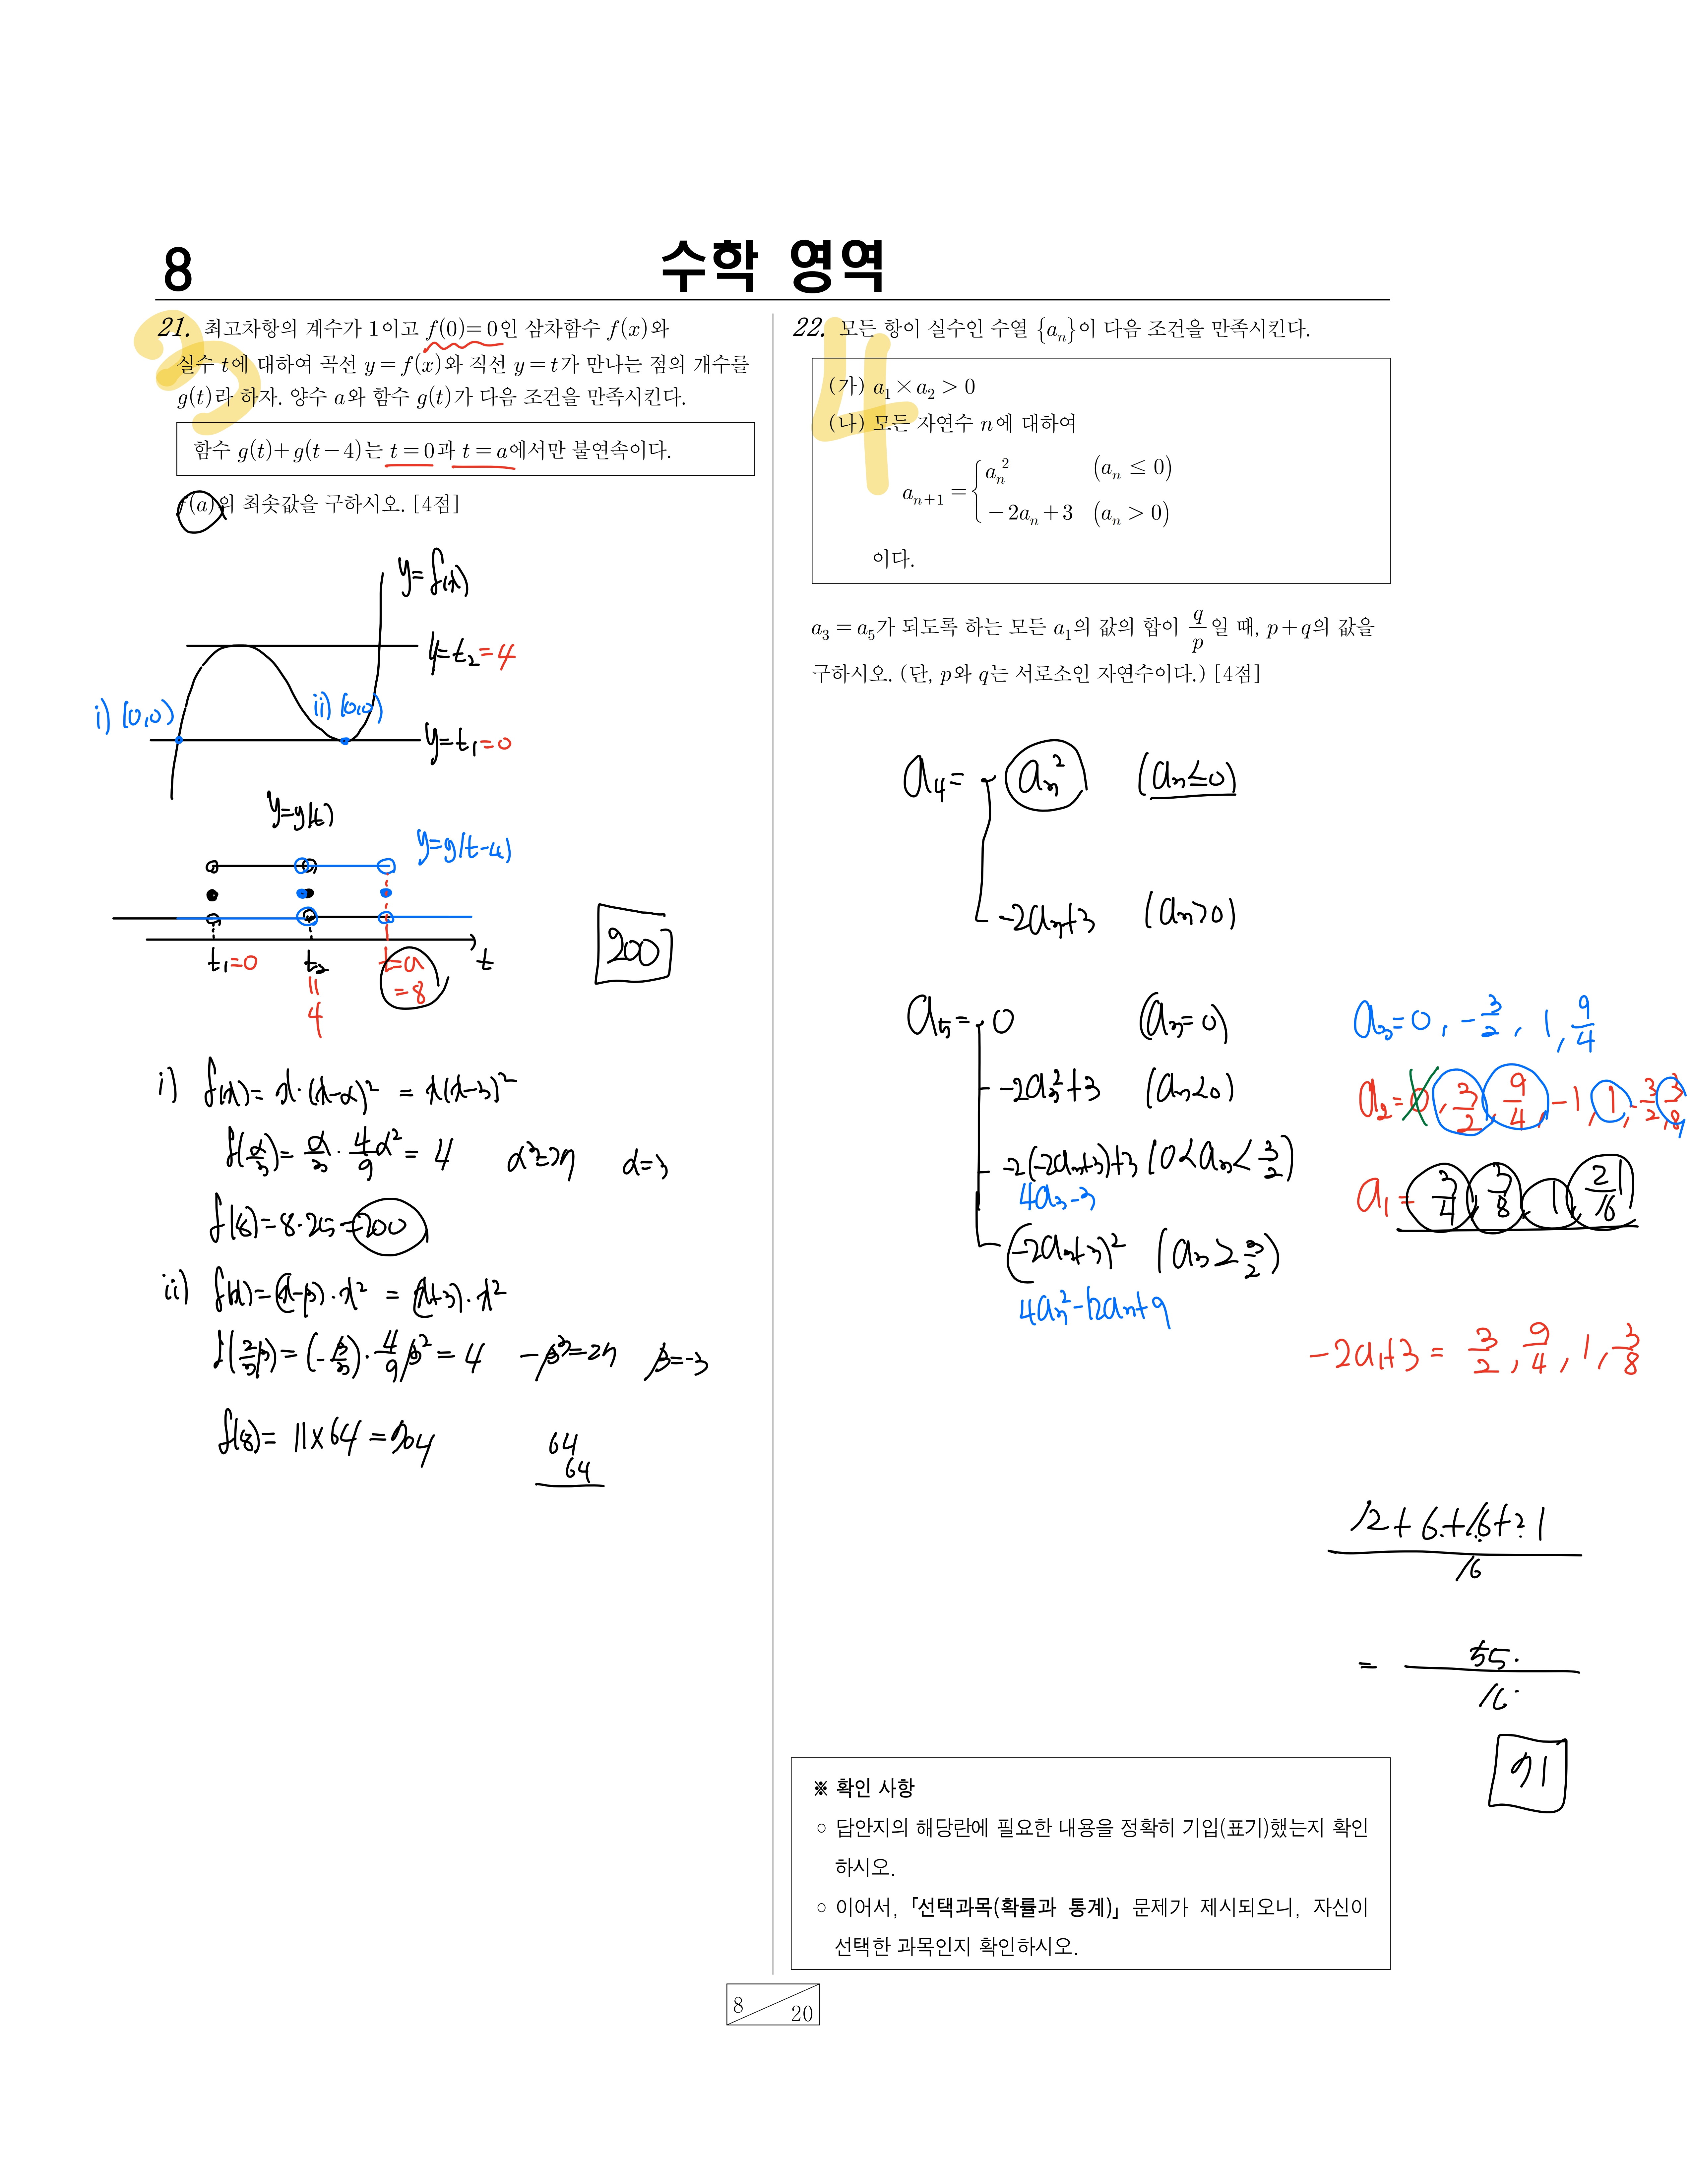 8
수학 영역
21. 최고차항의 계수가 1이고 f(0)=0인 삼차함수 f(x)와
실수 t에 대하여 곡선 y=f(x)와 직선 y=t가 만나는 점의 개수를
g(t)라 하자. 양수 a와 함수 g(t)가 다음 조건을 만족시킨다.
함수 g(t)+g(t-4)는 t=0과 t=a에서만 불연속이다.
f(a)의 최솟값을 구하시오. [4점]
3
y=f(x)
4=t₂=4
i) (0,0)
ii) (0,0)
y=t₁=0
y=g(t)
y=g(t-4)
t₁=0
t₂
t=a
t
=8
11
4
200
i) f(x)= x·(x-α)² = x(x-3)²
f(α/3)= α/3 · 4/9 α² = 4 α³=27 α=3
f(8)=8·25=200
ii) f(x)=(x-β)·x² = (x+3)·x²
f(2/3 β)=(-β/3)·4/9 β²=4 -β³=27 β=-3
f(8)= 11×64=704
64
64
22. 모든 항이 실수인 수열 {aₙ}이 다음 조건을 만족시킨다.
4
(가) a₁×a₂>0
(나) 모든 자연수 n에 대하여
aₙ₊₁ = { aₙ² (aₙ ≤ 0)
-2aₙ+3 (aₙ > 0)
이다.
a₃=a₅가 되도록 하는 모든 a₁의 값의 합이 q/p일 때, p+q의 값을
구하시오. (단, p와 q는 서로소인 자연수이다.) [4점]
a₄= a₃² (a₃≤0)
-2a₃+3 (a₃>0)
a₅= 0 (a₃=0)
-2a₃²+3 (a₃<0)
-2(-2a₃+3)+3 (0<a₃<3/2)
4a₃-3
(-2a₃+3)² (a₃≥3/2)
4a₃²-12a₃+9
a₃=0, -3/2, 1, 9/4
a₂=0, 3/2, 9/4, -1, 1, -3/2, 3/8
a₁= 3/4, 3/8, 1, 21/16
-2a₁+3= 3/2, 9/4, 1, 3/8
12+6+16+21
16
= 55
16
71
※ 확인 사항
○ 답안지의 해당란에 필요한 내용을 정확히 기입(표기)했는지 확인
하시오.
○ 이어서, 「선택과목(확률과 통계)」 문제가 제시되오니, 자신이
선택한 과목인지 확인하시오.
8
20